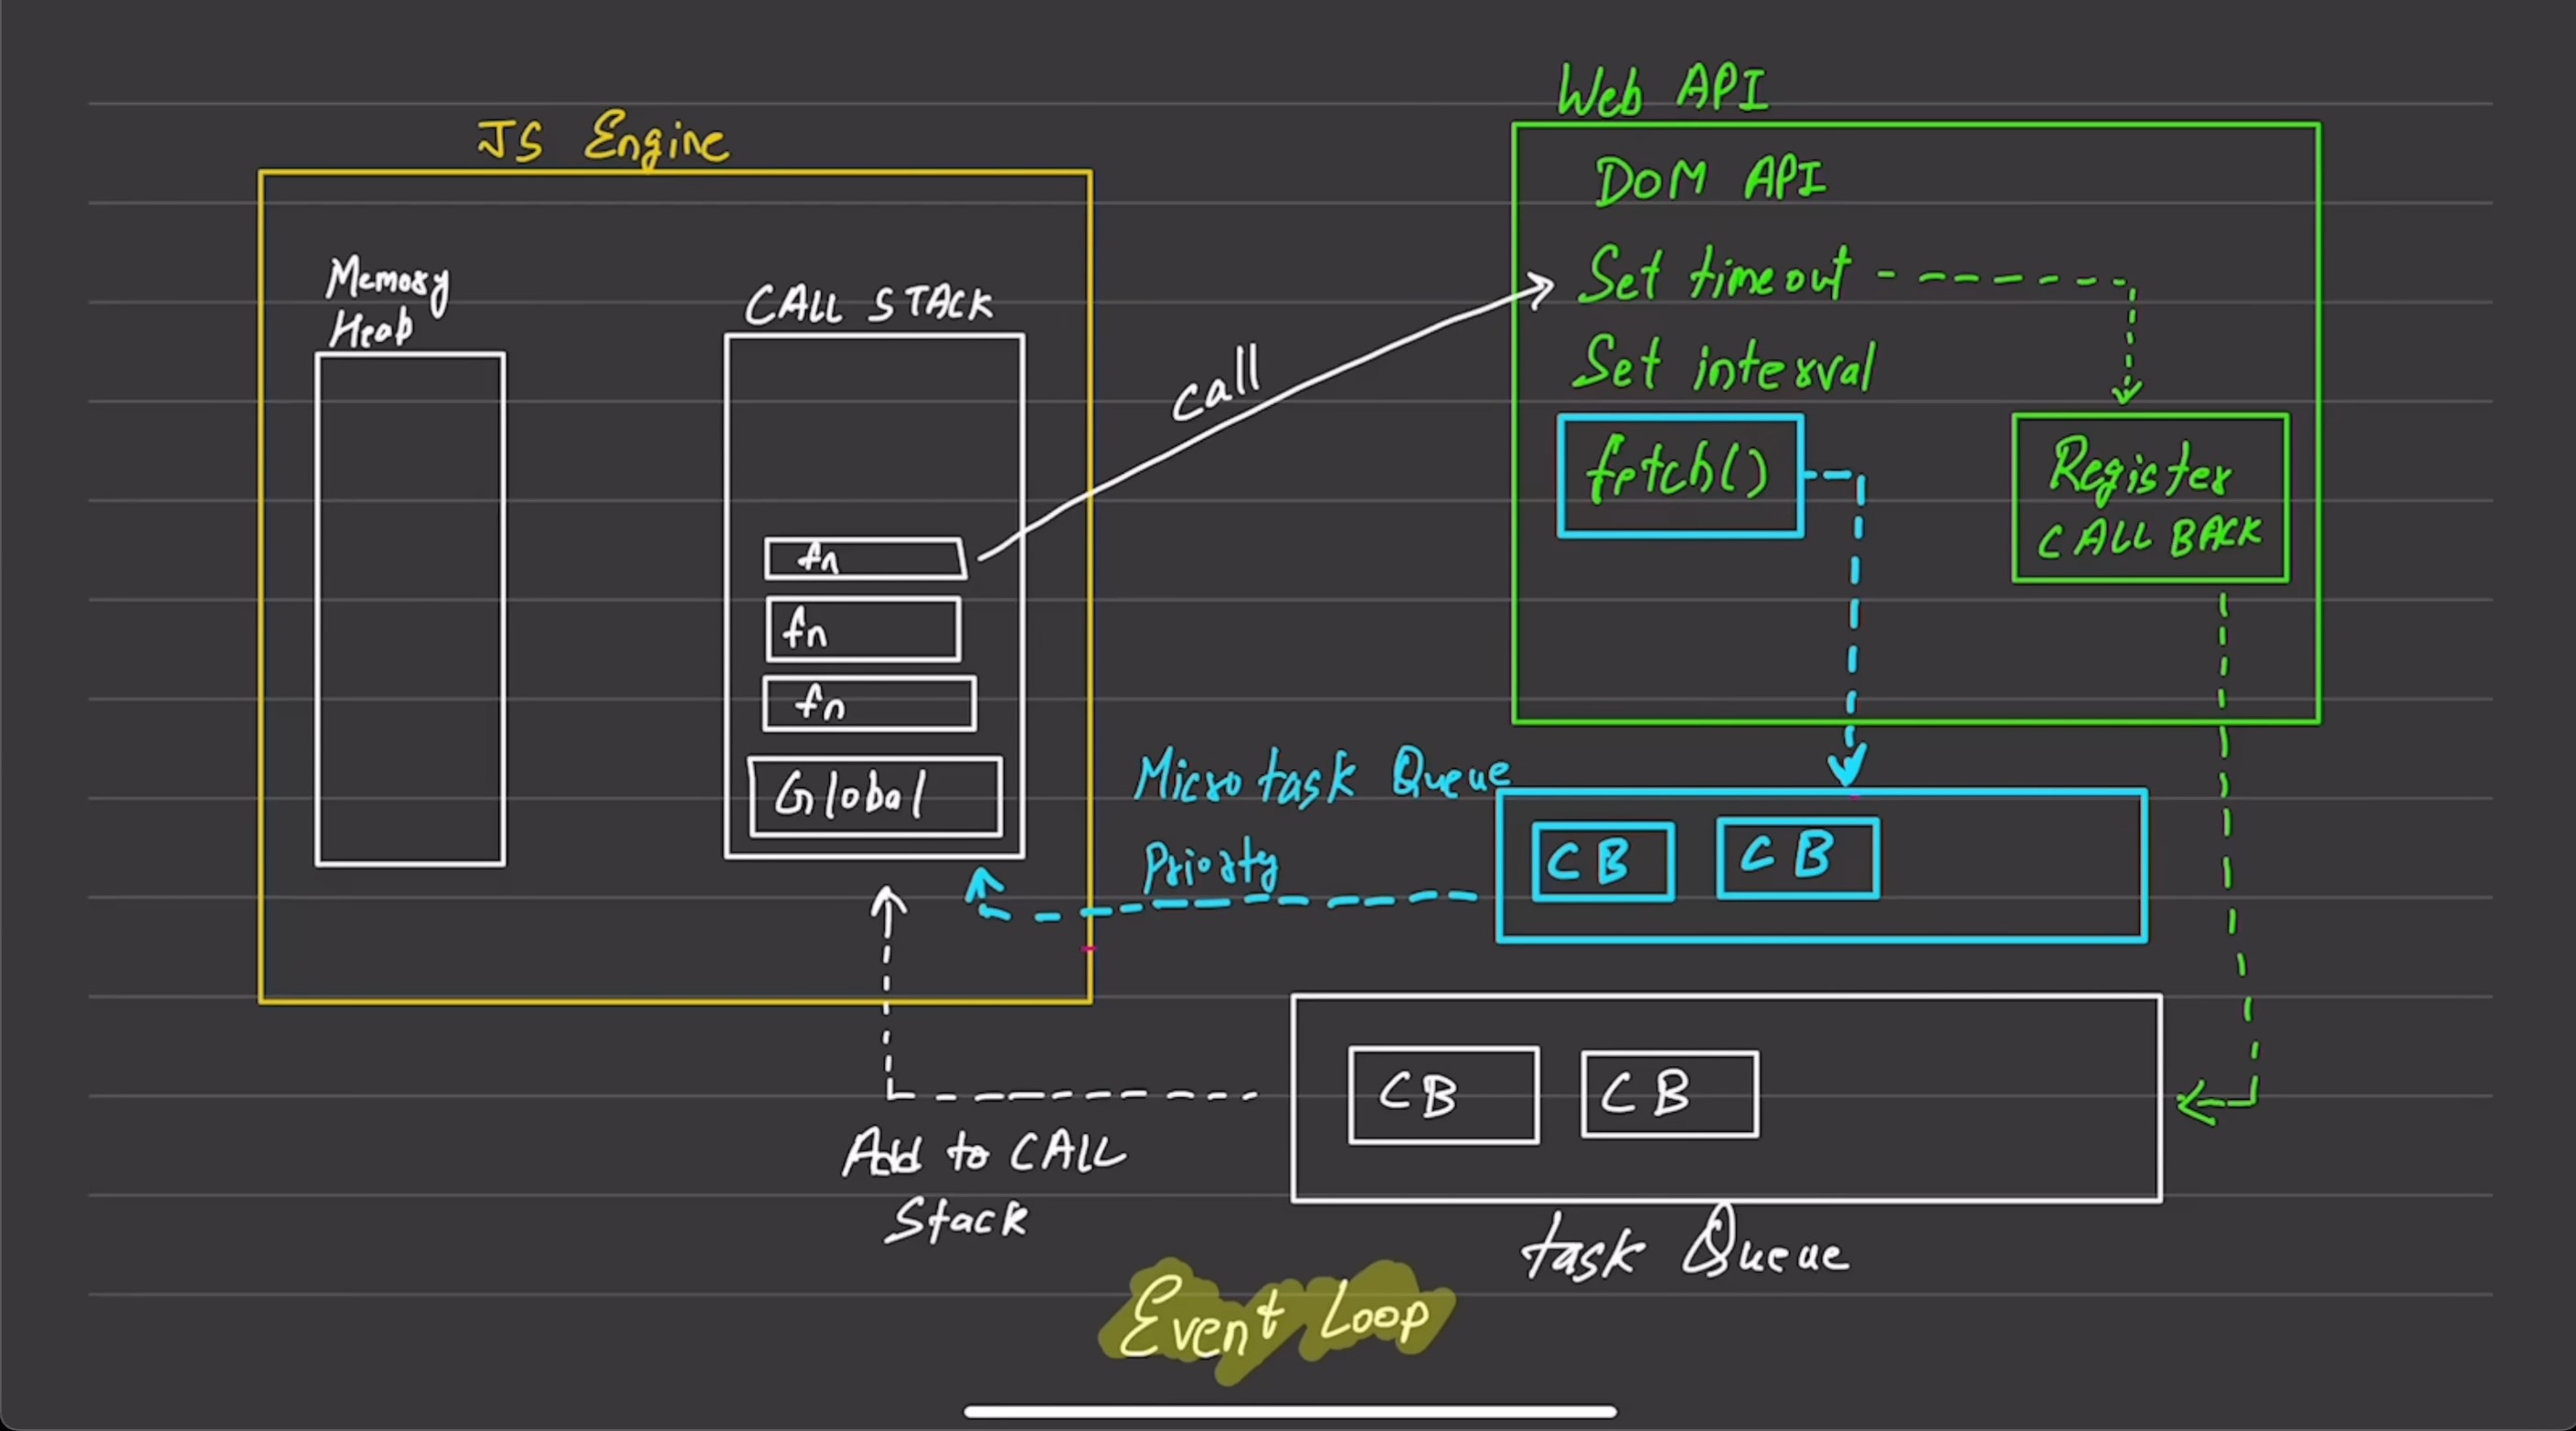 JS Engine
Memory
Heap
CALL STACK
fn
fn
fn
Global
call
Web API
DOM API
Set timeout
Set interval
fetch()
Register
CALL BACK
Micro task Queue
Priority
CB CB
CB CB
Add to CALL
Stack
task Queue
Event Loop